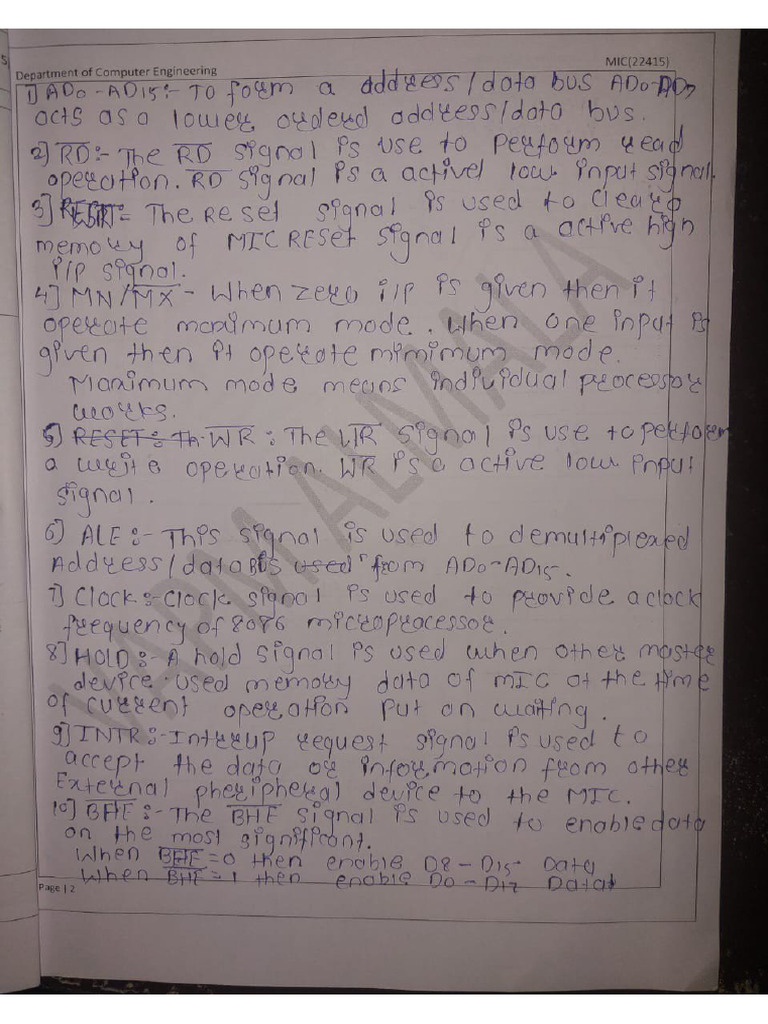 Department of Computer Engineering MIC(22415)
1) AD0-AD15:- To form a address/data bus AD0-AD7
acts as a lower ordered address/data bus.
2) R̅D̅:- The R̅D̅ signal is use to perform read
operation. R̅D̅ signal is a actived low input signal.
3) The Reset signal is used to clear
memory of MIC RESET signal is a active high
i/p signal.
4] MN/M̅X̅ - When zero i/p is given then it
operate maximum mode. When one input is
given then it operate mimimum mode.
Maximum mode means individual processor
works.
5) RESET: Th W̅R̅: The W̅R̅ signal is use to perform
a write operation. W̅R̅ is a active low input
signal.
6) ALE:- This signal is used to demultiplexed
Address/data bus used from AD0-AD15.
7) Clock:- Clock signal is used to provide a clock
frequency of 8086 microprocessor.
8] HOLD:- A hold signal is used when other master
device used memory data of MIC at the time
of current operation put on waiting.
9) INTR:- Intrrup request signal is used to
accept the data or information from other
External pheripheral device to the MIC.
10] B̅H̅E̅:- The B̅H̅E̅ signal is used to enable data
on the most significant.
When B̅H̅E̅=0 then enable D8-D15 Data
When B̅H̅E̅=1 then enable D0-
Page | 2
VAPM ALMALA